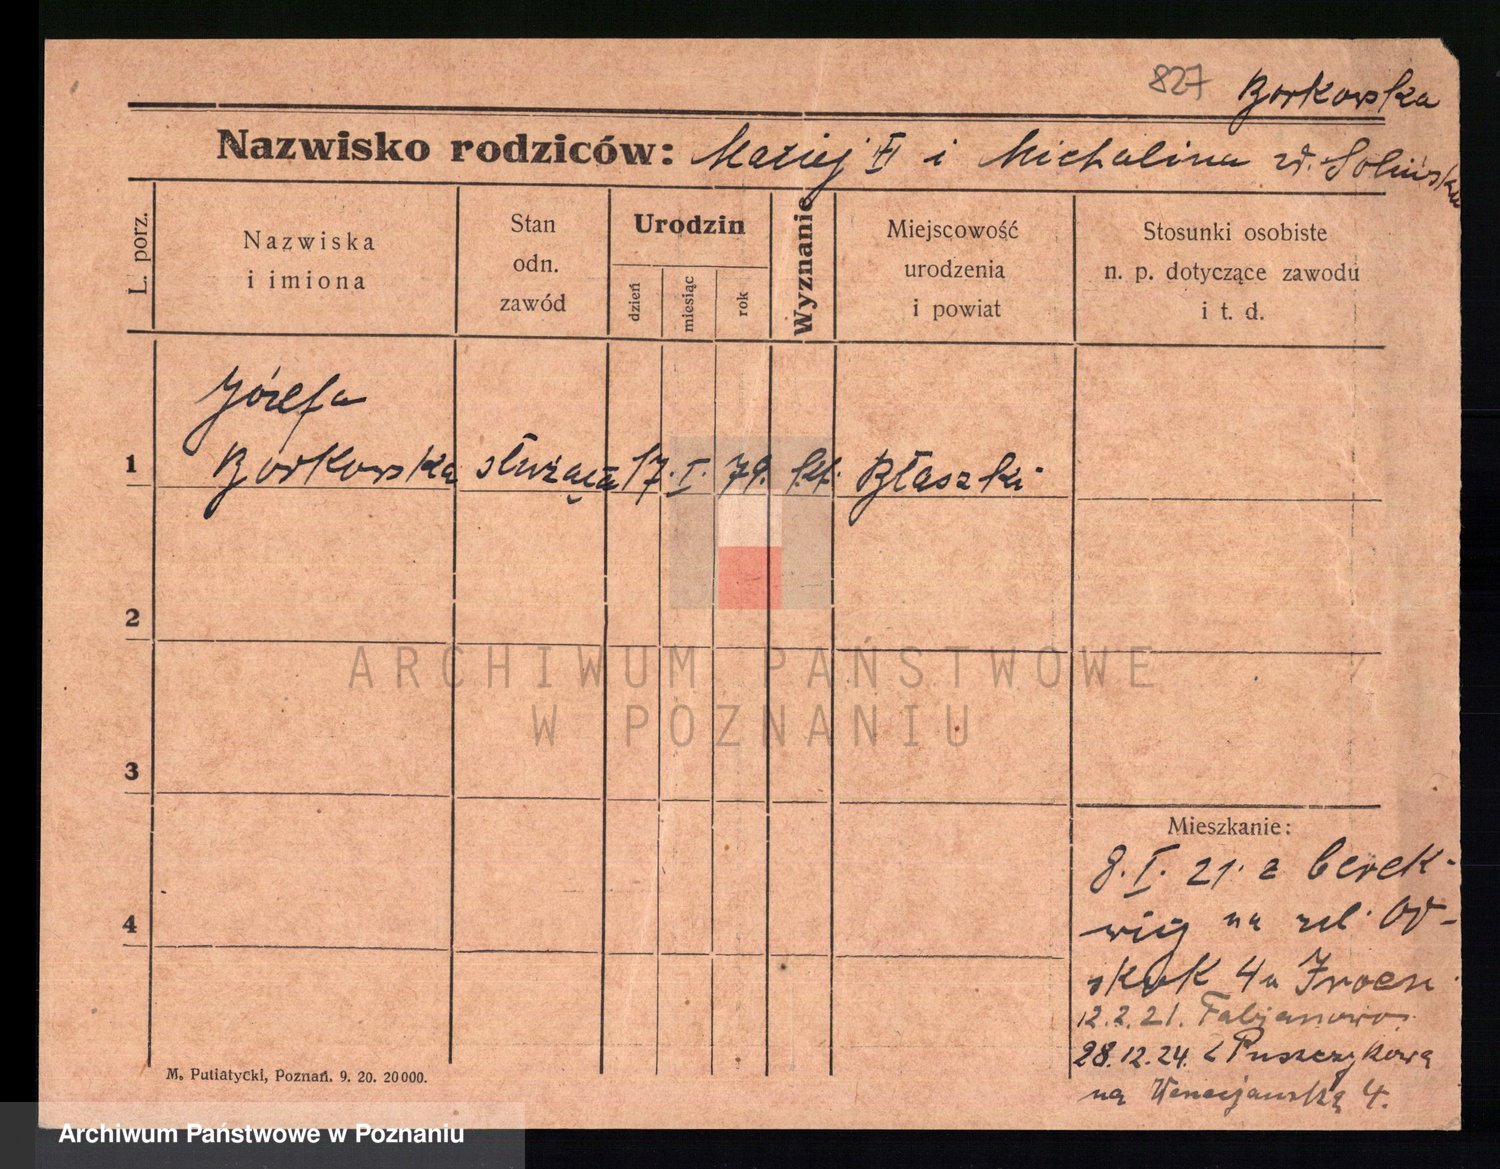 827 Borkowska
Nazwisko rodziców: Maciej † i Michalina zd. Solińska
L. porz.
Nazwiska
i imiona
Stan
odn.
zawód
Urodzin
dzień
miesiąc
rok
Wyznanie
Miejscowość
urodzenia
i powiat
Stosunki osobiste
n. p. dotyczące zawodu
i t. d.
Józefa
1 Borkowska służąca 17. I. 79. kt. Błaszki
2
3
4
ARCHIWUM PAŃSTWOWE
W POZNANIU
Mieszkanie:
8. I. 21. z Cerek-
wicy na
4a
12. 2. 21. Fabjanowo
28. 12. 24. z Puszczykowa
na 4.
M. Putiatycki, Poznań. 9. 20. 20000.
Archiwum Państwowe w Poznaniu